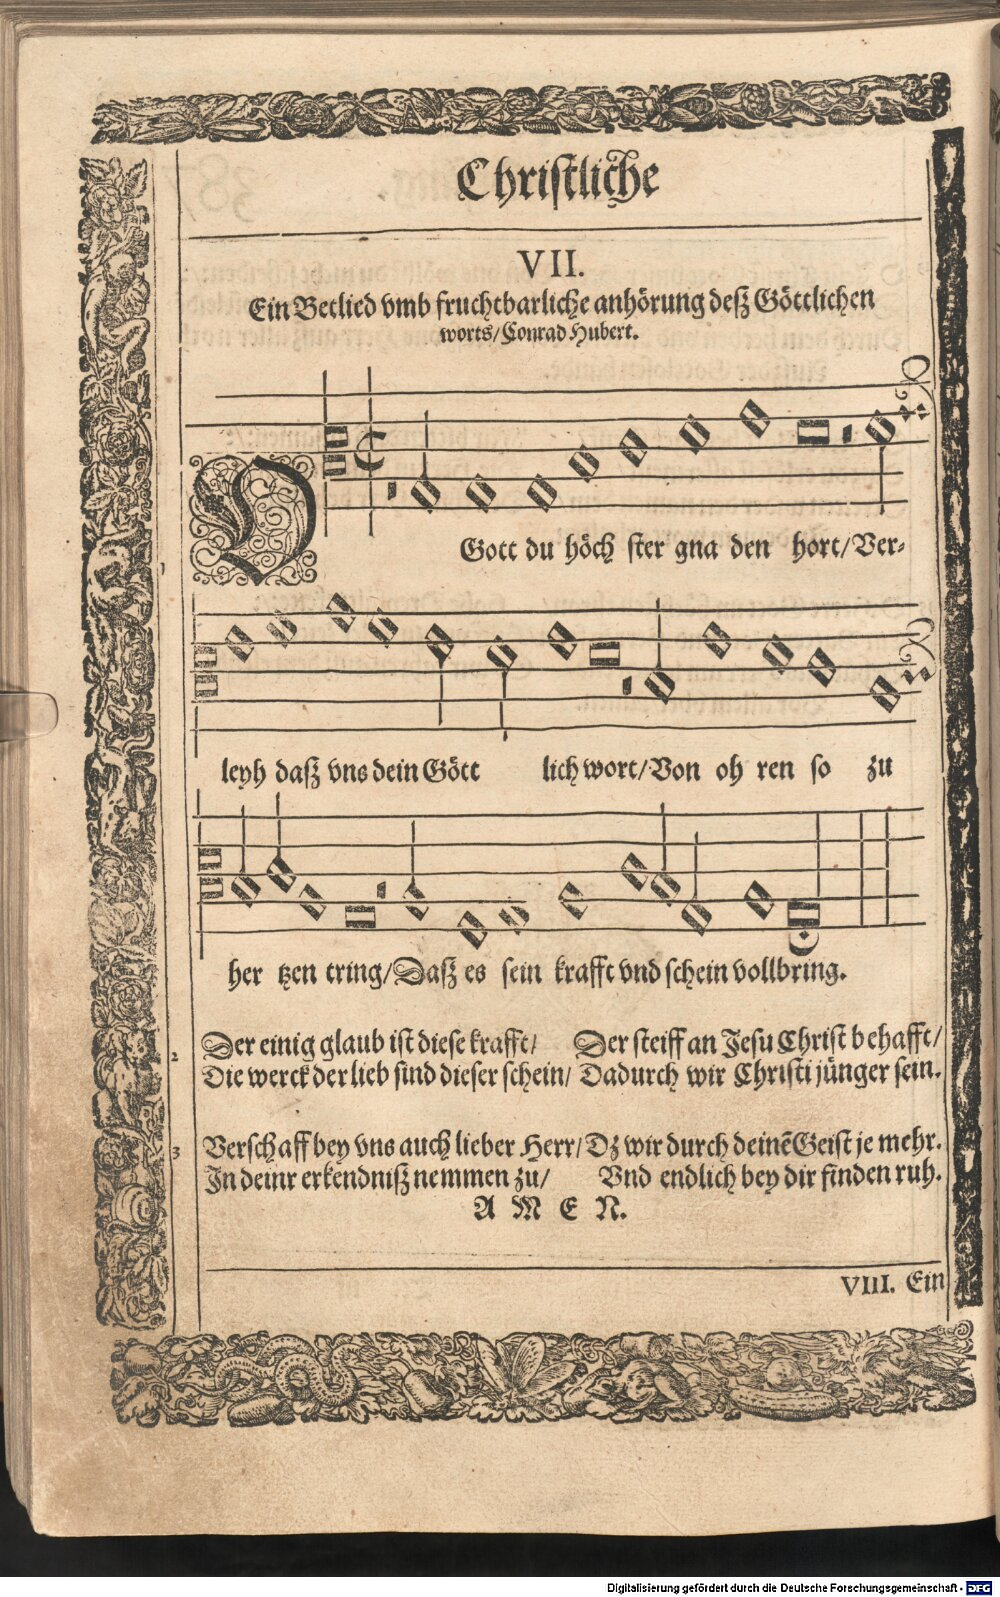 Christliche
VII.
Ein Betlied vmb fruchtbarliche anhörung deß Göttlichen
worts/Conrad Hubert.
1 O Gott du höch ster gna den hort/Ver-
leyh daß vns dein Gött lich wort/Von oh ren so zu
her tzen tring/Daß es sein krafft vnd schein vollbring.
2 Der einig glaub ist diese krafft/ Der steiff an Jesu Christ behafft/
Die werck der lieb sind dieser schein/ Dadurch wir Christi jünger sein.
3 Verschaff bey vns auch lieber Herr/Dz wir durch deinē Geist je mehr.
In deinr erkendniß nemmen zu/ Vnd endlich bey dir finden ruh.
A M E N.
VIII. Ein
Digitalisierung gefördert durch die Deutsche Forschungsgemeinschaft - DFG